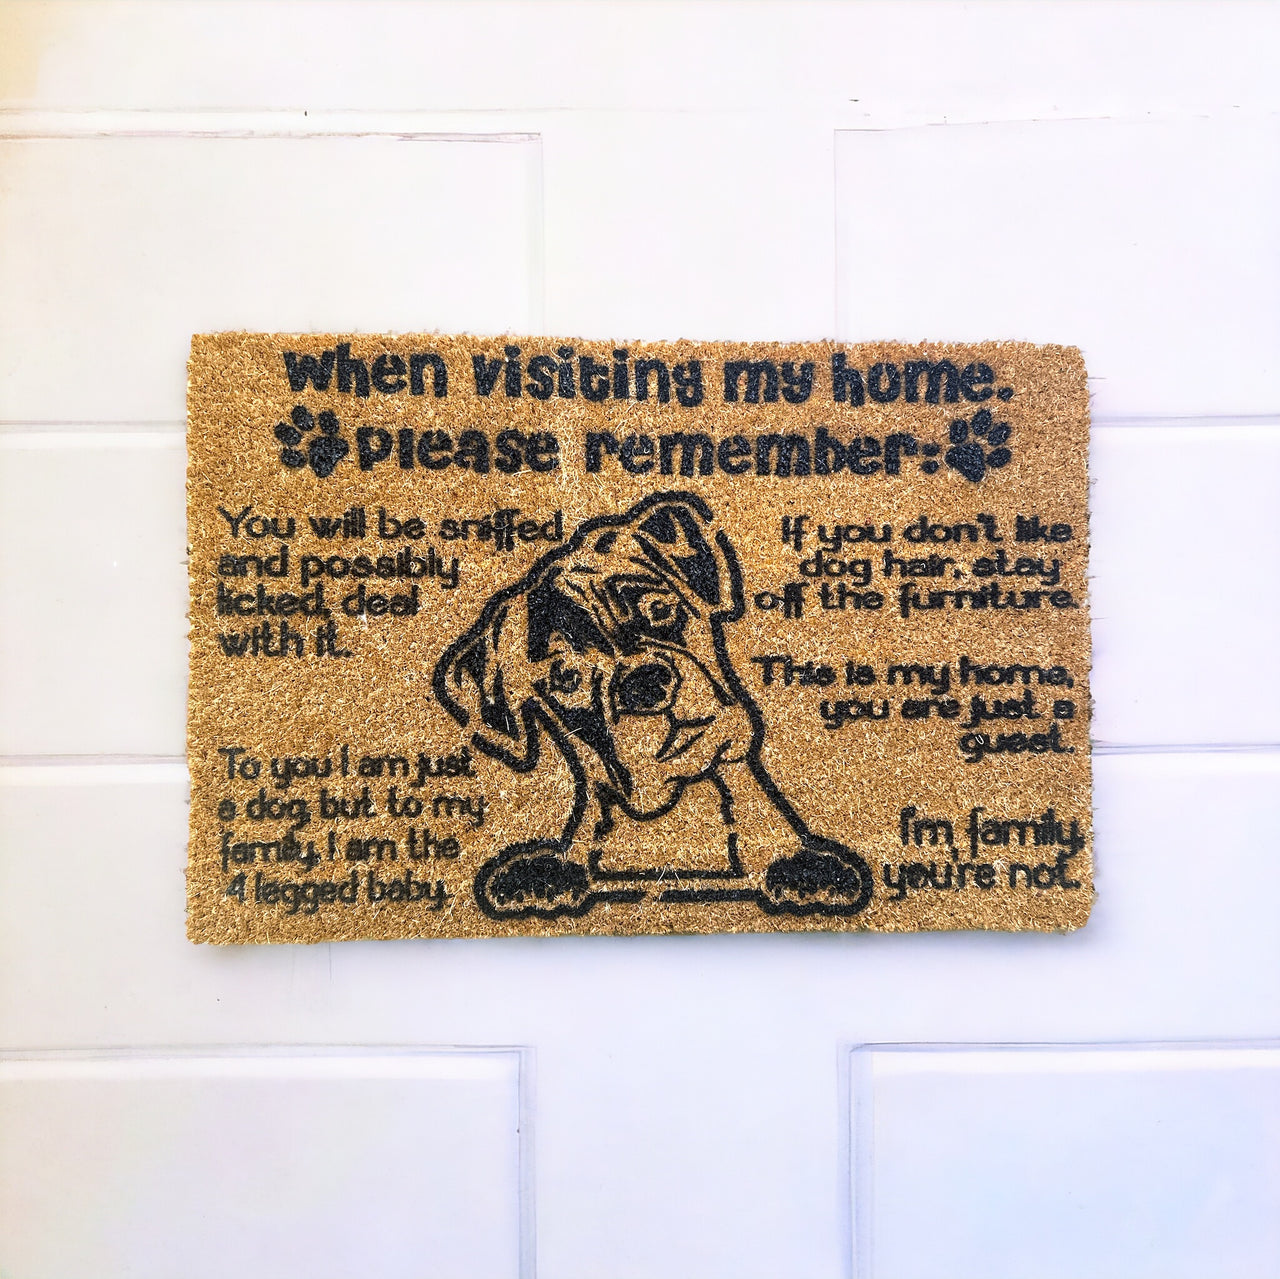 When visiting my home.
Please remember:
You will be sniffed
and possibly
licked, deal
with it.
To you I am just
a dog, but to my
family, I am the
4 legged baby.
If you don't like
dog hair, stay
off the furniture.
This is my home,
you are just a
guest.
I'm family,
you're not.